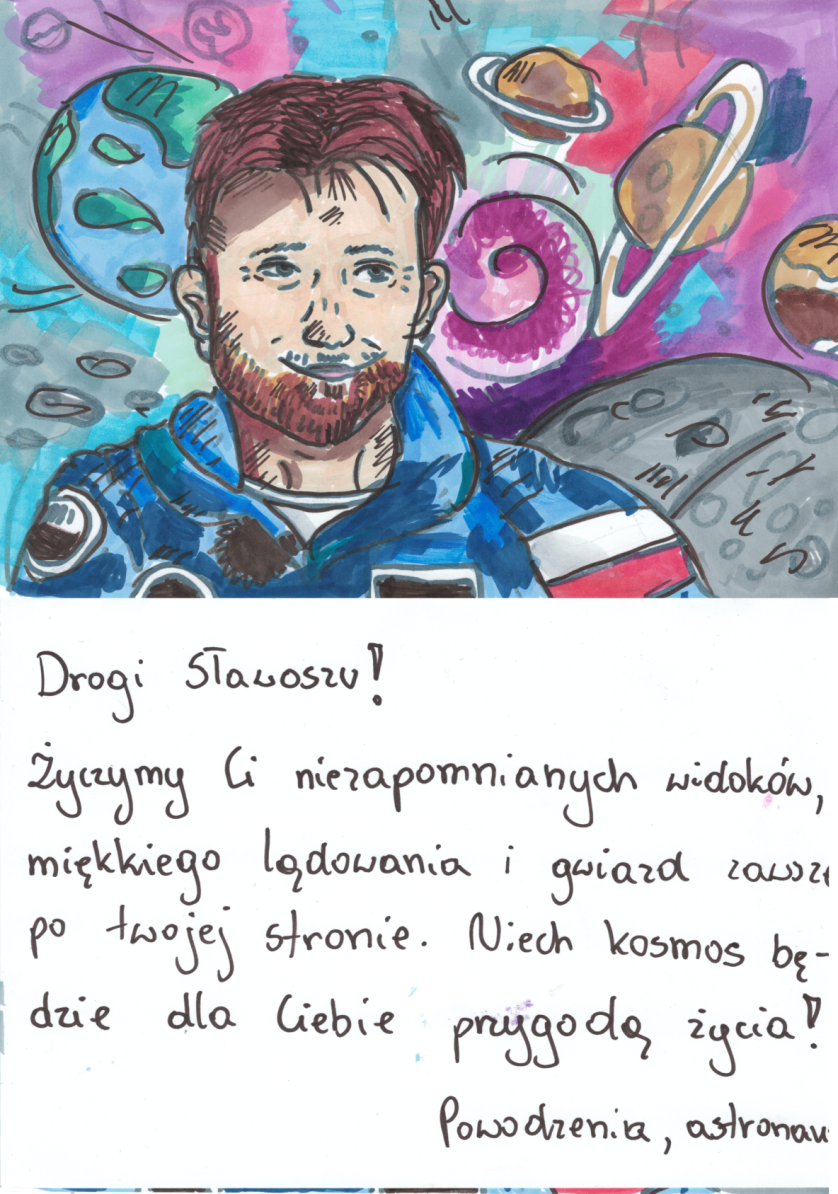 Drogi Sławoszu!
Życzymy Ci niezapomnianych widoków,
miękkiego lądowania i gwiazd zawsze
po twojej stronie. Niech kosmos bę-
dzie dla Ciebie przygodą życia!
Powodzenia, astronau